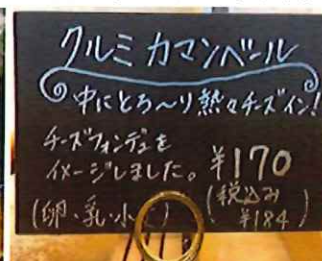 クルミカマンベール
中にとろ〜り熱々チーズイン!
チーズフォンデュを
イメージしました。 ¥170
(卵・乳・小 ) (税込み ¥184)